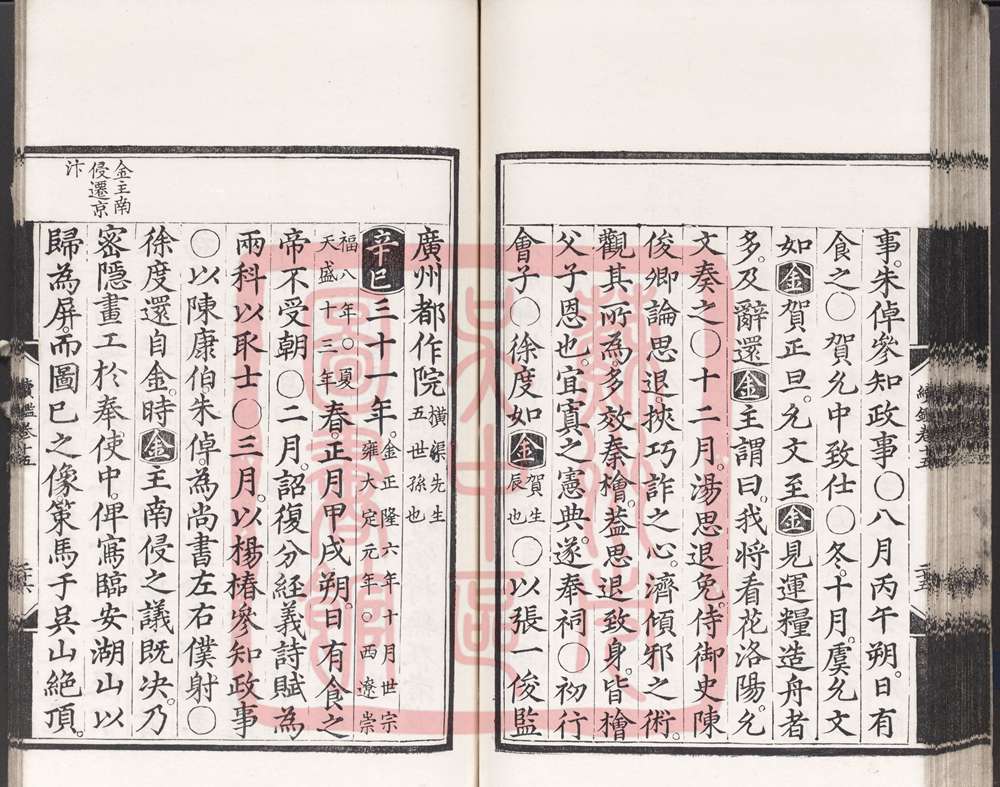 事。朱倬參知政事○八月丙午朔。日有
食之○賀允中致仕○冬。十月。虞允文
如金賀正旦。允文至金見運糧造舟者
多。及辭還金主謂曰。我將看花洛陽。允
文奏之○十二月。湯思退免。侍御史陳
俊卿論思退。挾巧詐之心。濟傾邪之術。
觀其所為多效秦檜。蓋思退致身。皆檜
父子恩也。宜寘之憲典。遂奉祠○初行
會子○徐度如金賀生辰也○以張一俊監
廣州都作院橫渠先生五世孫也
辛巳三十一年。金正隆六年十月世宗雍大定元年。○西遼崇福八年。○夏天盛十三年春。正月甲戌朔。日有食之
帝不受朝○二月。詔復分經義詩賦為
兩科以取士○三月。以楊椿參知政事
○以陳康伯。朱倬。為尚書左右僕射○
徐度還自金。時金主南侵之議既決。乃
密隱畫工於奉使中。俾寫臨安湖山以
歸為屏。而圖已之像策馬于吳山絕頂。
金主南
侵遷京
汴